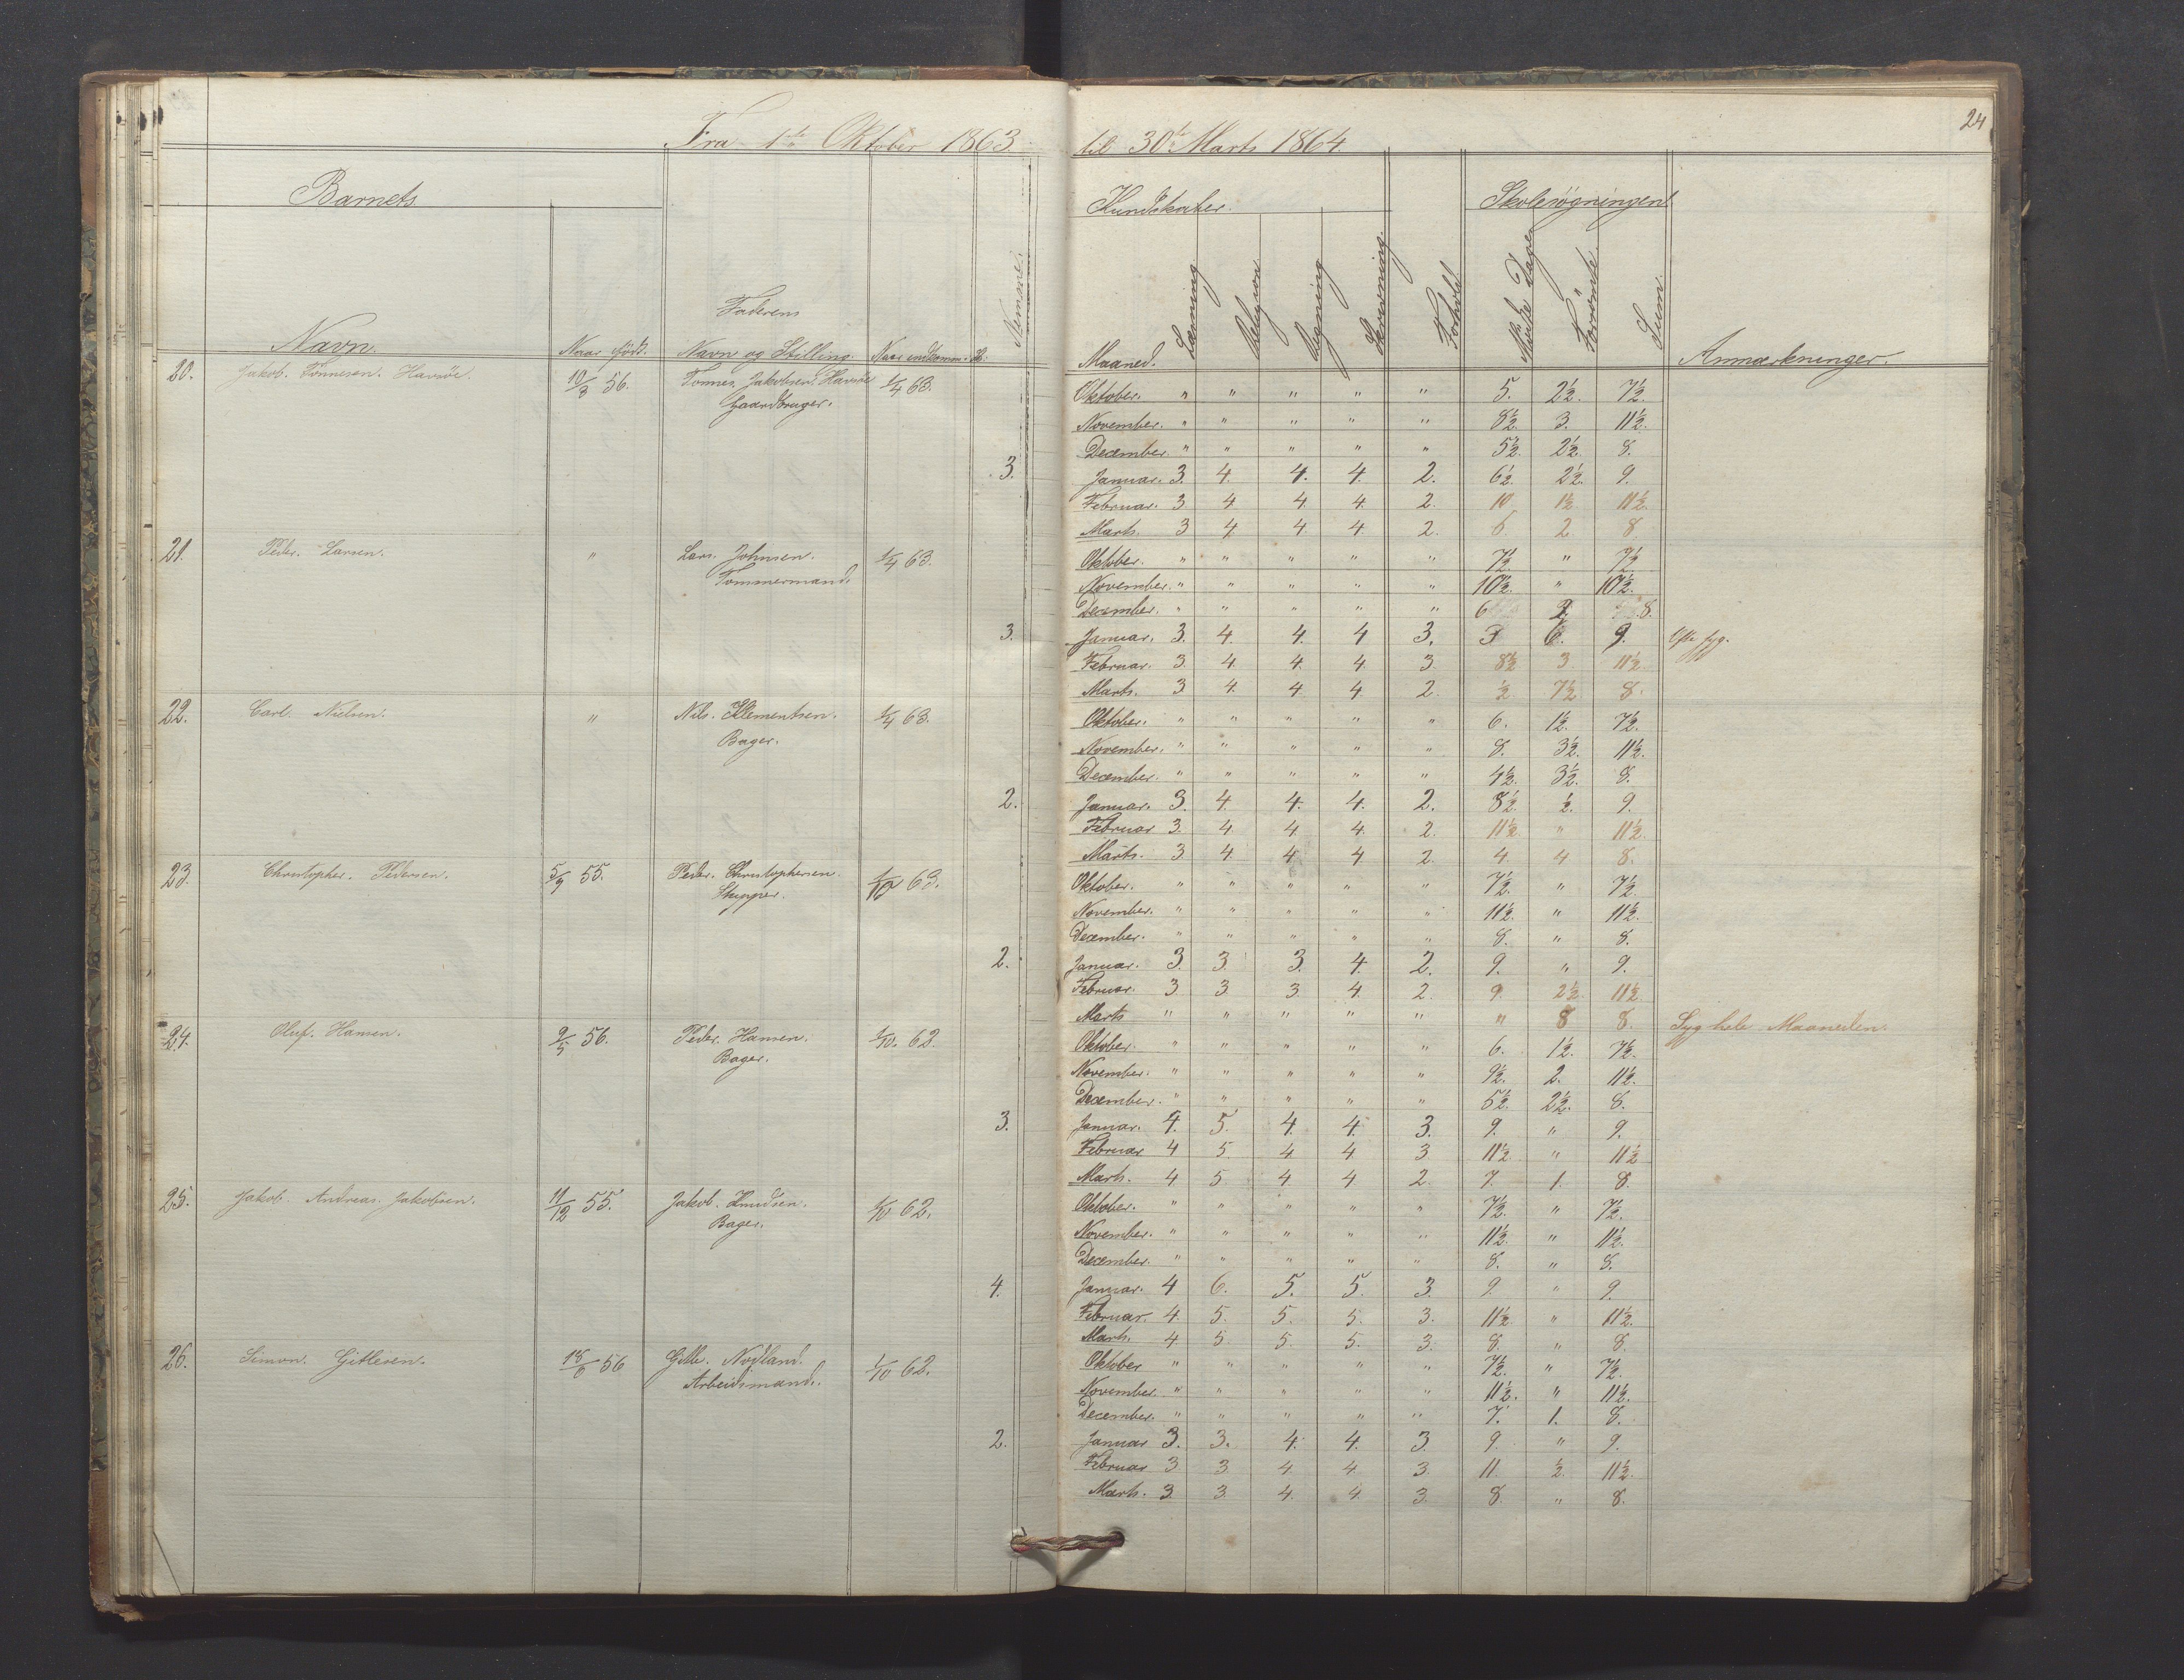 24
Fra 1ste Oktober 1863. til 30te Marts 1864.
Barnets Kundskaber. Skolesøgningen.
Navn. Naar født. Faderens Navn og Stilling. Naar indkommen. Nemme. Maaned. Læsning Religion Regning Skrivning. Forhold Mødte Dage Forsømte. Sum. Anmærkninger.
20. Jakob. Tønnesen. Havsøe. 10/3 56. Tønnes. Jakobsen. Havsøe 1/4 63. Oktober. " " " " " 5. 2½. 7½.
Gaardbruger. November. " " " " " 8½. 3. 11½.
December. " " " " " 5½. 2½. 8.
3. Januar. 3. 4. 4. 4. 2. 6½. 2½. 9.
Februar. 3 4 4 4. 2. 10. 1½ 11½.
Marts. 3 4 4. 4. 2. 6 2 8
21. Peder. Larsen. " Lars. Johnsen. 1/4 63. Oktober. " " " " " 7½. " 7½.
Tømmermand. November. " " " " " 10½. " 10½.
December. " " " " " 6 2. 8.
3. Januar. 3. 4. 4. 4 3. 3 6. 9. Ofte syg.
Februar. 3. 4. 4. 4 3. 8½ 3 11½.
Marts. 3 4. 4 4 2. ½. 7½. 8.
22. Carl. Nielsen. " Nils. Klementsen. 1/4 63. Oktober. " " " " " 6. 1½. 7½.
Bager. November. " " " " " 8. 3½. 11½.
December. " " " " " 4½. 3½. 8.
2. Januar. 3. 4. 4. 4. 2. 8½. ½. 9.
Februar 3. 4. 4. 4. 2. 11½. " 11½.
Marts. 3. 4. 4. 4 2. 4. 4 8.
23. Christopher. Pedersen. 5/9 55. Peder. Christophersen. 1/10 63. Oktober. " " " " " 7½. " 7½.
Skipper. November. " " " " " 11½. " 11½.
December. " " " " " 8. " 8.
2. Januar. 3. 3. 3. 4. 2. 9. " 9.
Februar. 3. 3. 3. 4. 2. 9. 2½ 11½.
Marts " " " " " " 8 8. Syg hele Maaneden.
24. Oluf. Hansen. 2/5 56. Peder. Hansen. 1/10. 62. Oktober. " " " " " 6. 1½. 7½.
Bager. November. " " " " " 9½. 2. 11½.
December. " " " " " 5½. 2½. 8.
3. Januar. 4. 5. 4. 4. 3. 9. " 9.
Februar 4 5. 4 4 3 11½ " 11½
Marts. 4 5. 4 4 2. 7. 1. 8.
25. Jakob. Andreas. Jakobsen. 11/12 55. Jakob. Knudsen. 1/10 62. Oktober. " " " " " 7½. " 7½.
Bager. November. " " " " " 11½. " 11½.
December. " " " " " 8. " 8.
4. Januar. 4 6. 5. 5. 3. 9. " 9.
Februar. 4. 5. 5. 5. 3. 11½. " 11½.
Marts. 4. 5. 5. 5. 3. 8. " 8.
26. Simon. Gitlesen. 18/6 56 Gitle. Nodland. 1/10 62. Oktober " " " " " 7½. " 7½.
Arbeidsmand. November " " " " " 11½. " 11½.
December. " " " " " 7. 1. 8.
2. Januar 3. 3. 4. 4. 3. 9. " 9.
Februar 3 3 4 4. 3. 11. ½. 11½.
Marts. 3. 3. 4. 4. 3. 8. " 8.